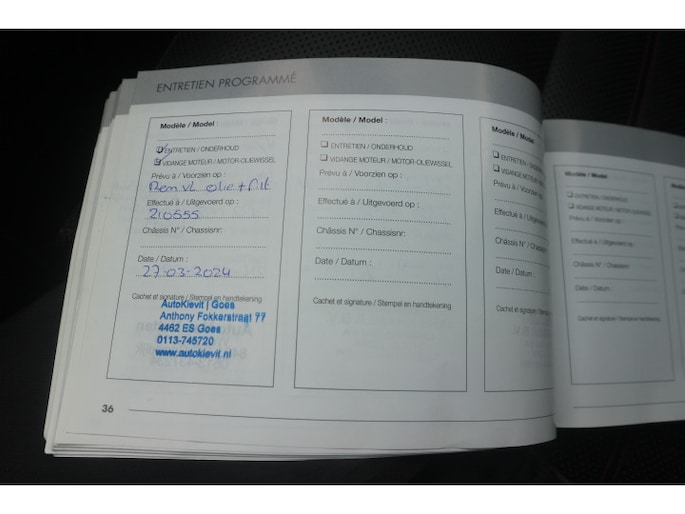 ENTRETIEN PROGRAMMÉ
Modèle / Model :
ENTRETIEN / ONDERHOUD
VIDANGE MOTEUR / MOTOR-OLIEWISSEL
Prévu à / Voorzien op :
Rem vl olie + filt
Effectué à / Uitgevoerd op :
210555
Châssis N° / Chassisnr:
Date / Datum :
27-03-2024
Cachet et signature / Stempel en handtekening
AutoKievit | Goes
Anthony Fokkerstraat 77
4462 ES Goes
0113-745720
www.autokievit.nl
Modèle / Model :
ENTRETIEN / ONDERHOUD
VIDANGE MOTEUR / MOTOR-OLIEWISSEL
Prévu à / Voorzien op :
Effectué à / Uitgevoerd op :
Châssis N° / Chassisnr:
Date / Datum :
Cachet et signature / Stempel en handtekening
Modèle / Model
ENTRETIEN / ONDERHOUD
VIDANGE MOTEUR / MOTOR
Prévu à / Voorzien op :
Effectué à / Uitgevoerd
Châssis N° / Chassisnr
Date / Datum :
Cachet et signature / Stempel
Modèle / Model
ENTRETIEN / ONDERHOUD
VIDANGE MOTEUR / MOTOR-OLIEWISSEL
Prévu à / Voorzien op :
Effectué à / Uitgevoerd op :
Châssis N° / Chassisnr:
Date / Datum :
Cachet et signature / Stempel en handtekening
36